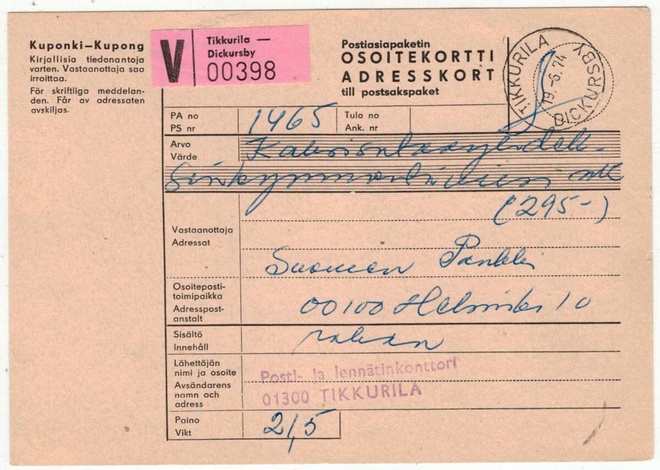 Kuponki–Kupong
Kirjallisia tiedonantoja
varten. Vastaanottaja saa
irroittaa.
För skriftliga meddelan-
den. Får av adressaten
avskiljas.
V
Tikkurila –
Dickursby
00398
Postiasiapaketin
OSOITEKORTTI
ADRESSKORT
till postsakspaket
TIKKURILA
19.-6.74
DICKURSBY
PA no
PS nr
1465
Tulo no
Ank. nr
Arvo
Värde
(295-)
Vastaanottaja
Adressat
Suomen Pankki
Osoiteposti-
toimipaikka
Adresspost-
anstalt
00100 Helsinki 10
Sisältö
Innehåll
rahaa
Lähettäjän
nimi ja osoite
Avsändarens
namn och
adress
Posti- ja lennätinkonttori
01300 TIKKURILA
Paino
Vikt
2,5